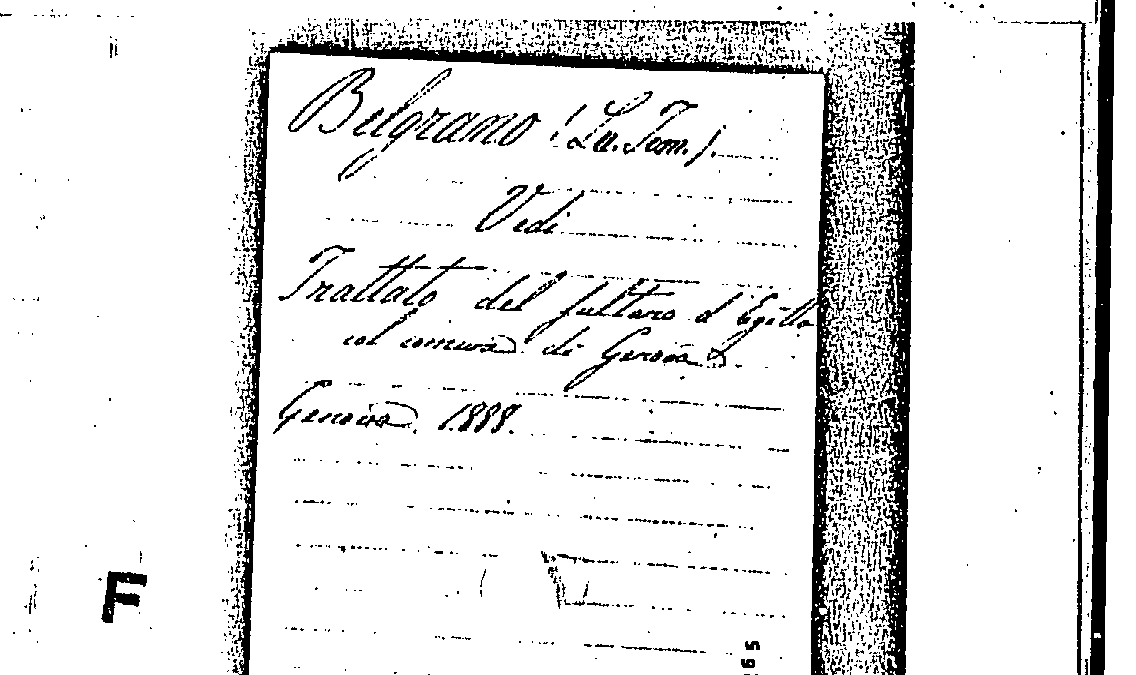 Belgrano (Lu. Tom.)
Vedi
Trattato del sultano d'Egitto
col comune di Genova
Genova 1888.
F
65